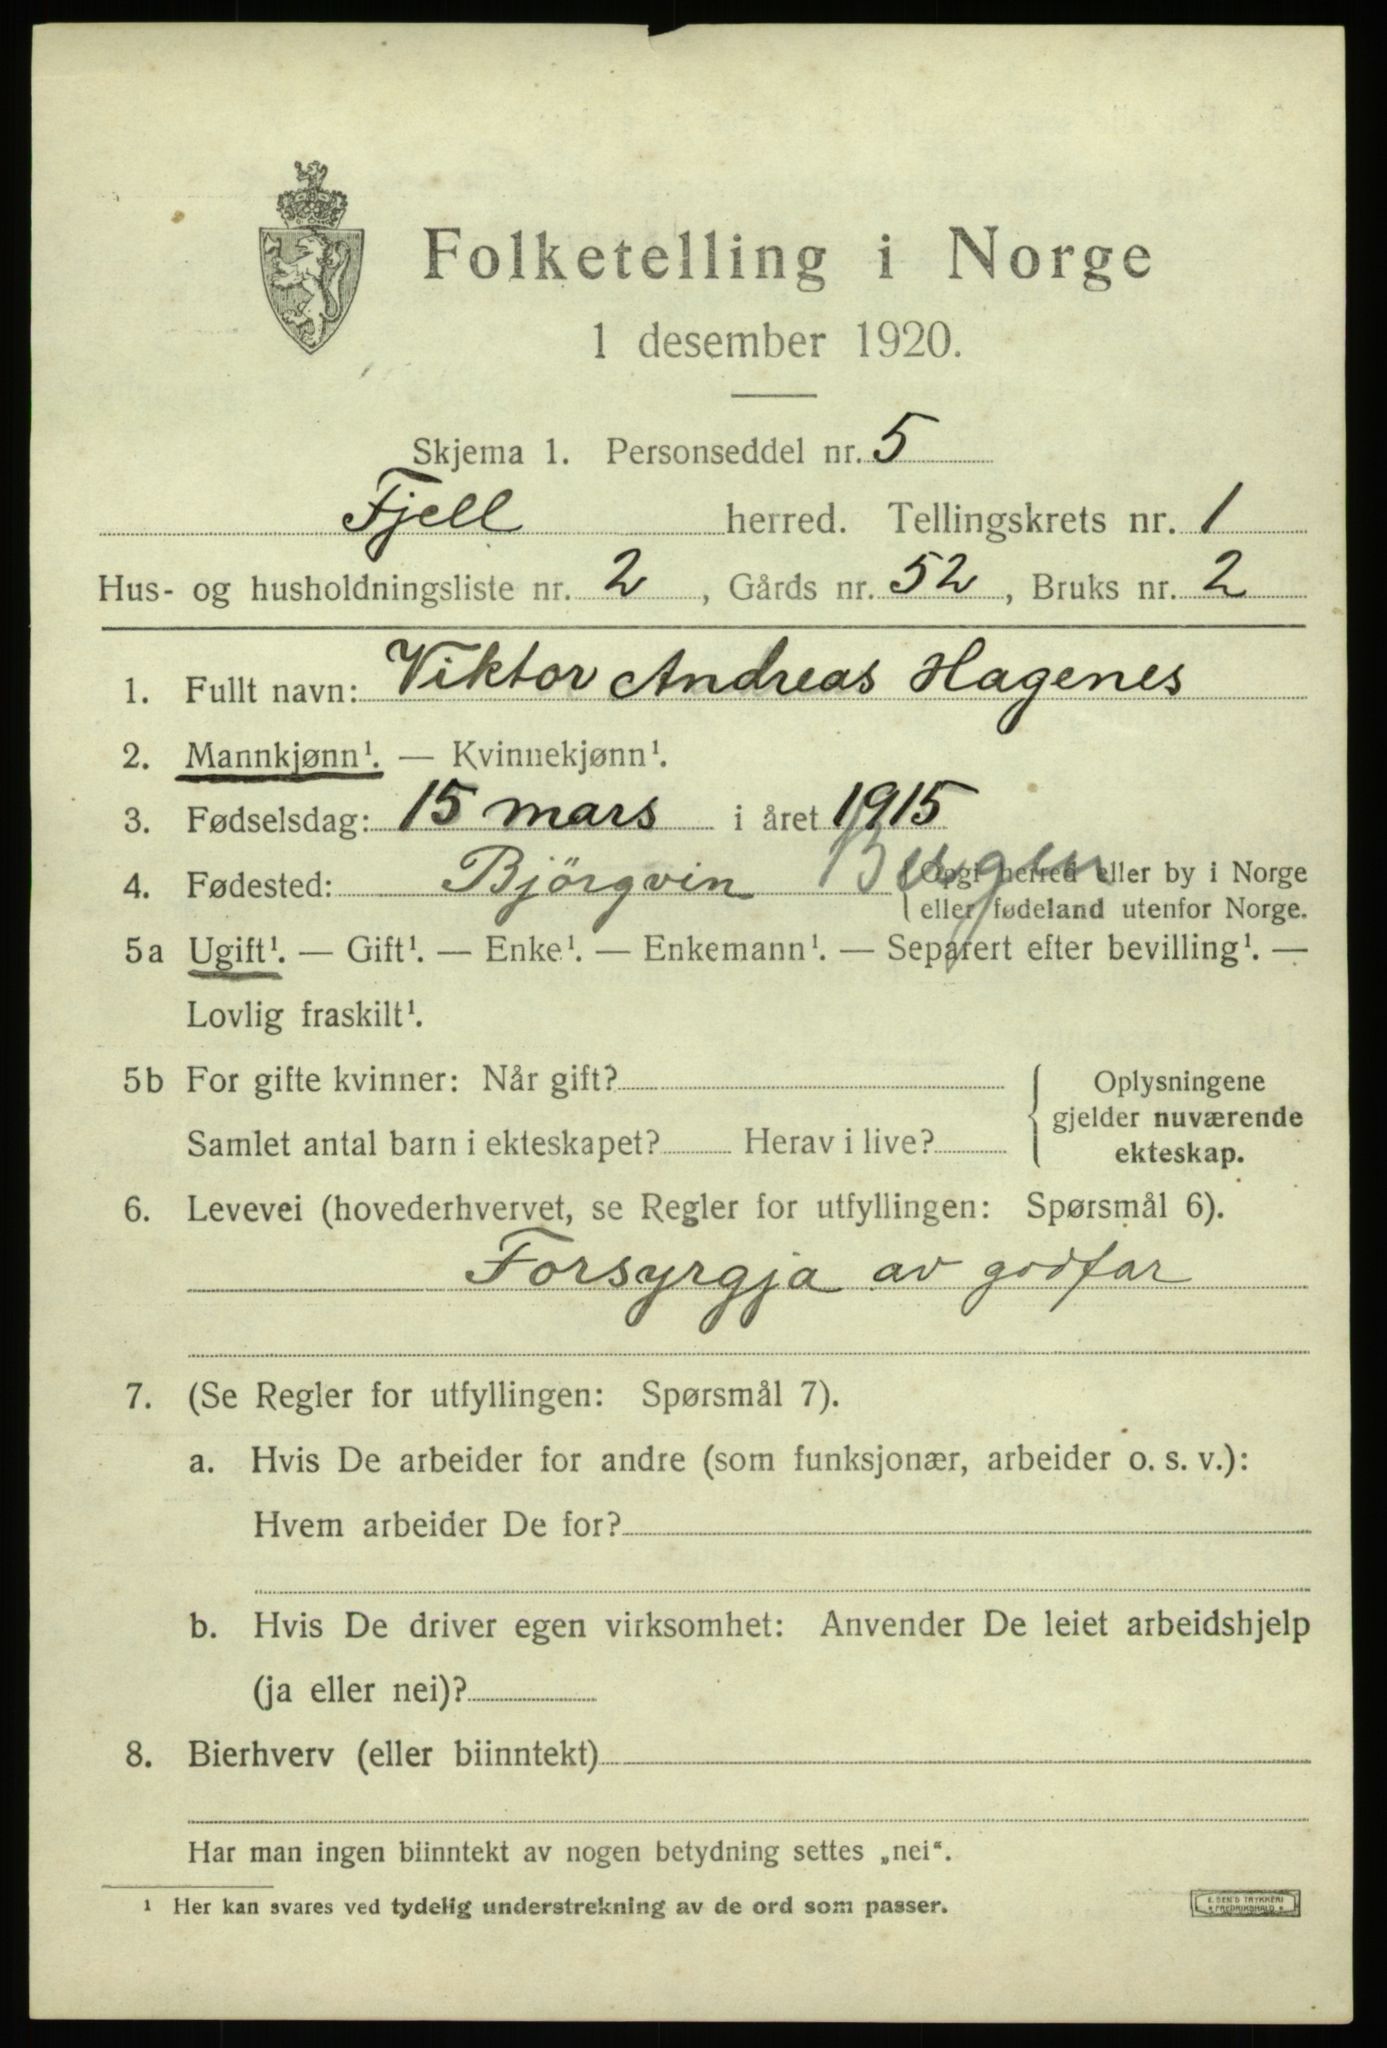 Folketelling i Norge
1 desember 1920.
Skjema 1. Personseddel nr. 5
Fjell herred. Tellingskrets nr. 1
Hus- og husholdningsliste nr. 2, Gårds nr. 52, Bruks nr. 2
1. Fullt navn: Viktor Andreas Hagenes
2. Mannkjønn¹. — Kvinnekjønn¹.
3. Fødselsdag: 15 mars i året 1915
4. Fødested: Björgvin Bergen (Opgi herred eller by i Norge
eller fødeland utenfor Norge.
5a Ugift¹. — Gift¹. — Enke¹. — Enkemann¹. — Separert efter bevilling¹. —
Lovlig fraskilt¹.
5b For gifte kvinner: Når gift?
Samlet antal barn i ekteskapet? Herav i live?
Oplysningene
gjelder nuværende
ekteskap.
6. Levevei (hovederhvervet, se Regler for utfyllingen: Spørsmål 6).
Forsyrgja av godfar
7. (Se Regler for utfyllingen: Spørsmål 7).
a. Hvis De arbeider for andre (som funksjonær, arbeider o. s. v.):
Hvem arbeider De for?
b. Hvis De driver egen virksomhet: Anvender De leiet arbeidshjelp
(ja eller nei)?
8. Bierhverv (eller biinntekt)
Har man ingen biinntekt av nogen betydning settes „nei“.
¹ Her kan svares ved tydelig understrekning av de ord som passer.
E. SEM'S TRYKKERI
* FREDRIKSHALD *